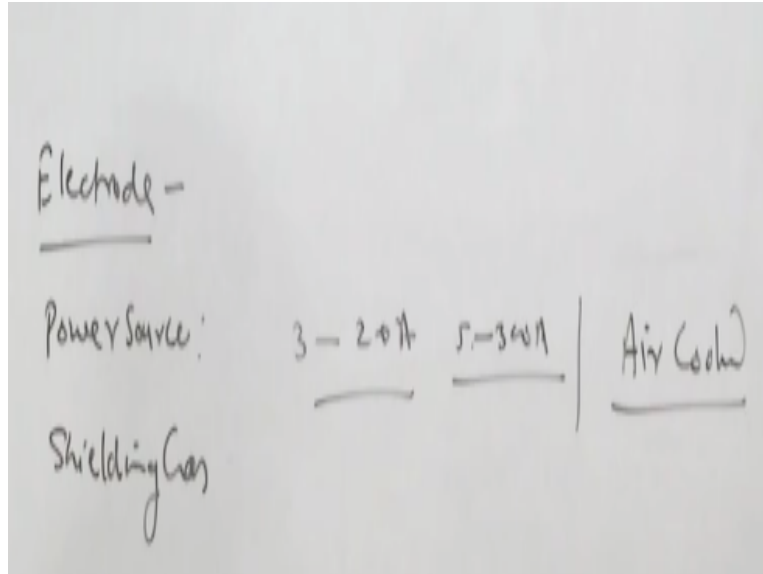 Electrode -
Power Source: 3 - 200A 5 - 300A | Air Cooled
Shielding Gas